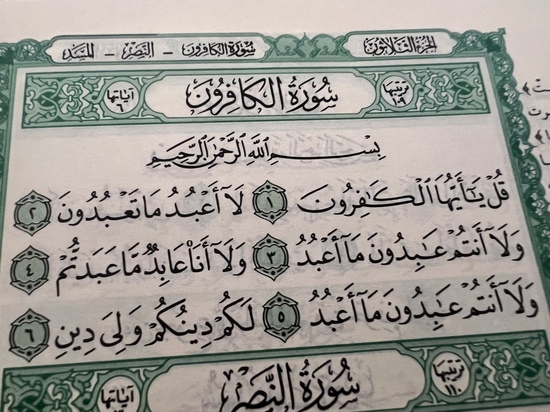 الجزء الثلاثون سورة الكافرون - النصر - المسد
ترتيبها ١٠٩ سُورَةُ الكَافِرُونَ آياتها ٦
بِسْمِ ٱللَّهِ ٱلرَّحْمَٰنِ ٱلرَّحِيمِ
قُلْ يَٰٓأَيُّهَا ٱلْكَٰفِرُونَ ١ لَآ أَعْبُدُ مَا تَعْبُدُونَ ٢
وَلَآ أَنتُمْ عَٰبِدُونَ مَآ أَعْبُدُ ٣ وَلَآ أَنَا۠ عَابِدٌ مَّا عَبَدتُّمْ ٤
وَلَآ أَنتُمْ عَٰبِدُونَ مَآ أَعْبُدُ ٥ لَكُمْ دِينُكُمْ وَلِىَ دِينِ ٦
ترتيبها ١١٠ سُورَةُ النَّصْرِ آياتها